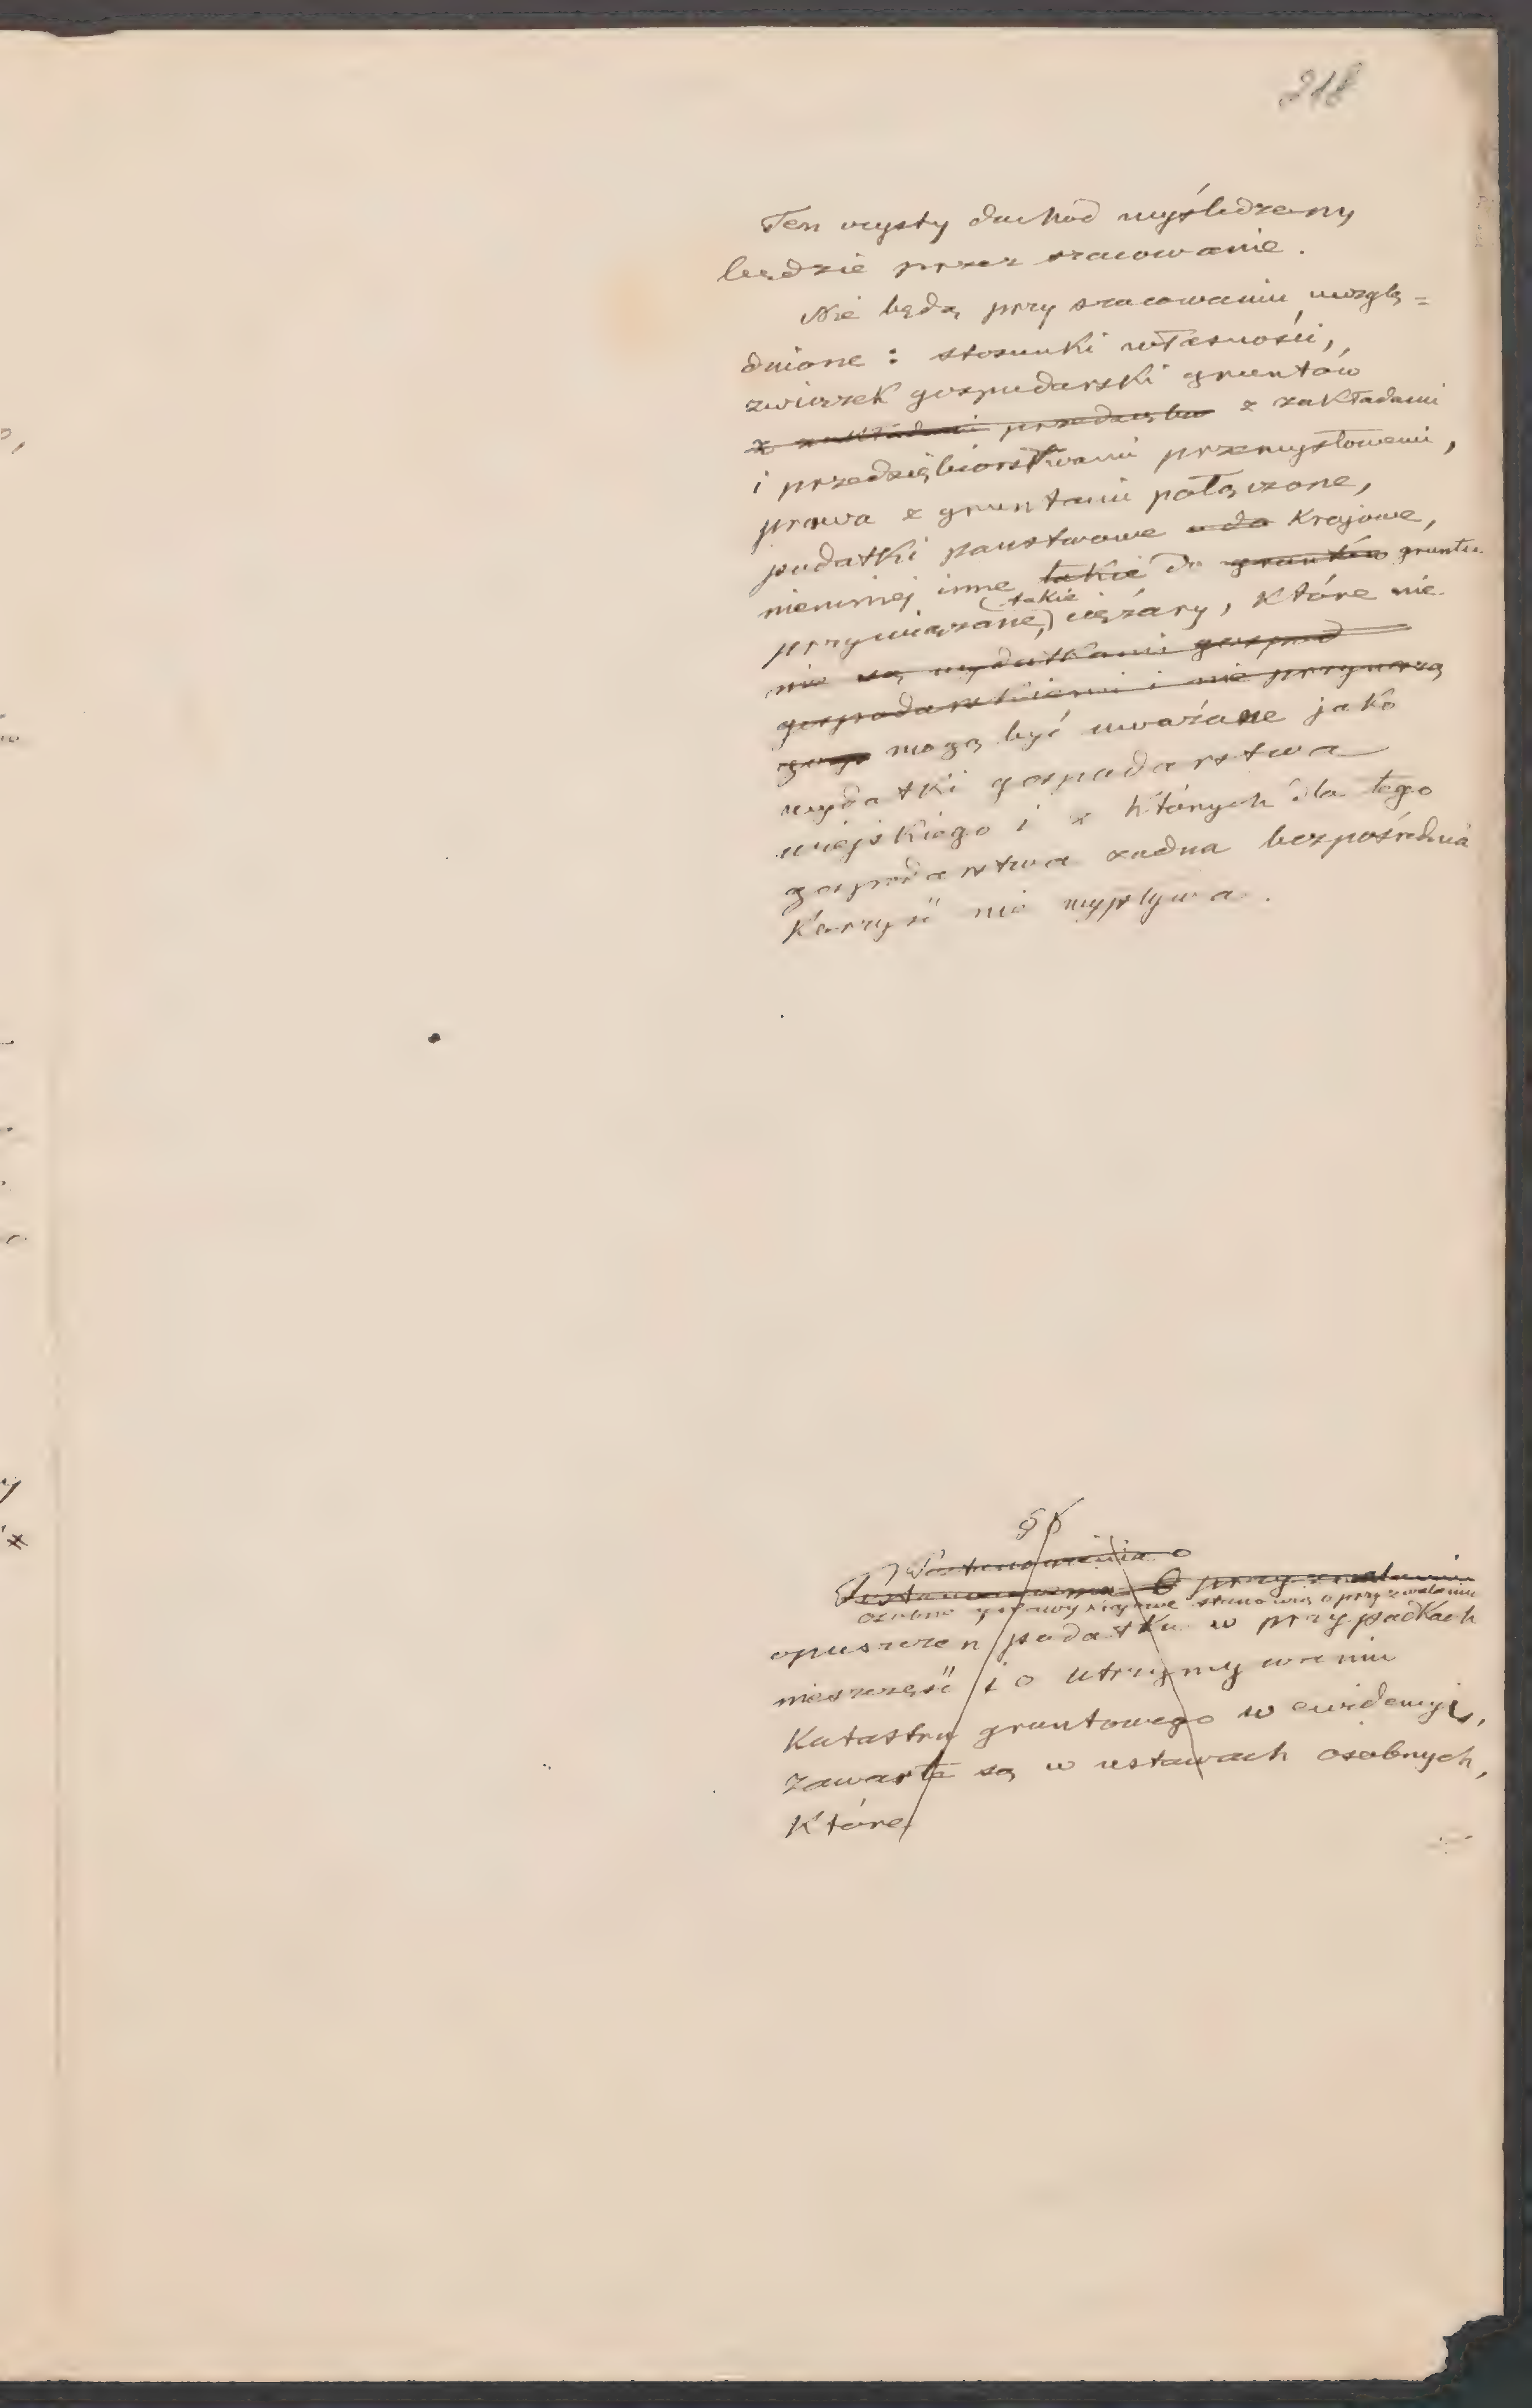 218
Ten czysty dochód wyśledzony
będzie przez szacowanie.
Nie będą przy szacowaniu uwzglę=
dnione: stosunki własności,
związek gospodarski gruntów
z zakładami przedsiębio z zakładami
i przedsiębiorstwami przemysłowemi,
prawa z gruntami połączone,
podatki państwowe a do Krajowe,
niemniej inne takie do gruntów gruntu
takie
przywiązane, ciężary, Które nie
nie są wydatkami gospod
gospodarskiemi i nie przynoszą
mogą być uważane jako
wydatki gospodarstwa
wiejskiego i z których dla tego
gospodarstwa żadna bezpośrednia
Korzyść nie wypływa.
§ 6
Postanowienia o
Postanowienia O przyzwalaniu
osobne ustawy krajowe stanowią o przyzwalaniu
opuszczeń podatku w przypadkach
nieszczęść i o utrzymywaniu
Katastru gruntowego w ewidencyi,
zawarte są w ustawach osobnych,
Które